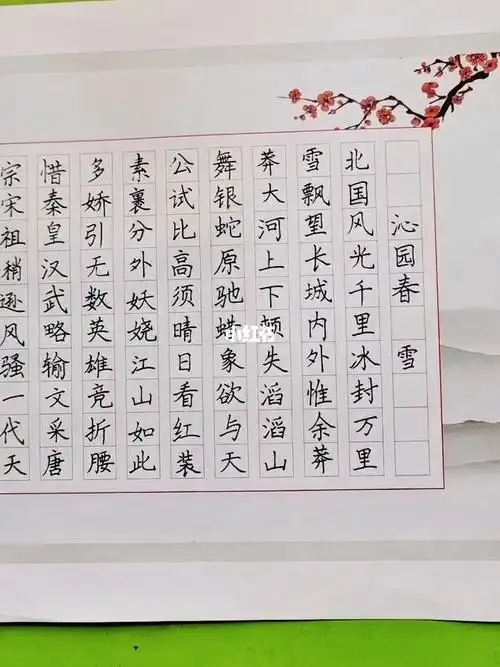 沁园春 雪
北国风光千里冰封万里
雪飘望长城内外惟余莽
莽大河上下顿失滔滔山
舞银蛇原驰蜡象欲与天
公试比高须晴日看红装
素裹分外妖娆江山如此
多娇引无数英雄竞折腰
惜秦皇汉武略输文采唐
宗宋祖稍逊风骚一代天
小红书